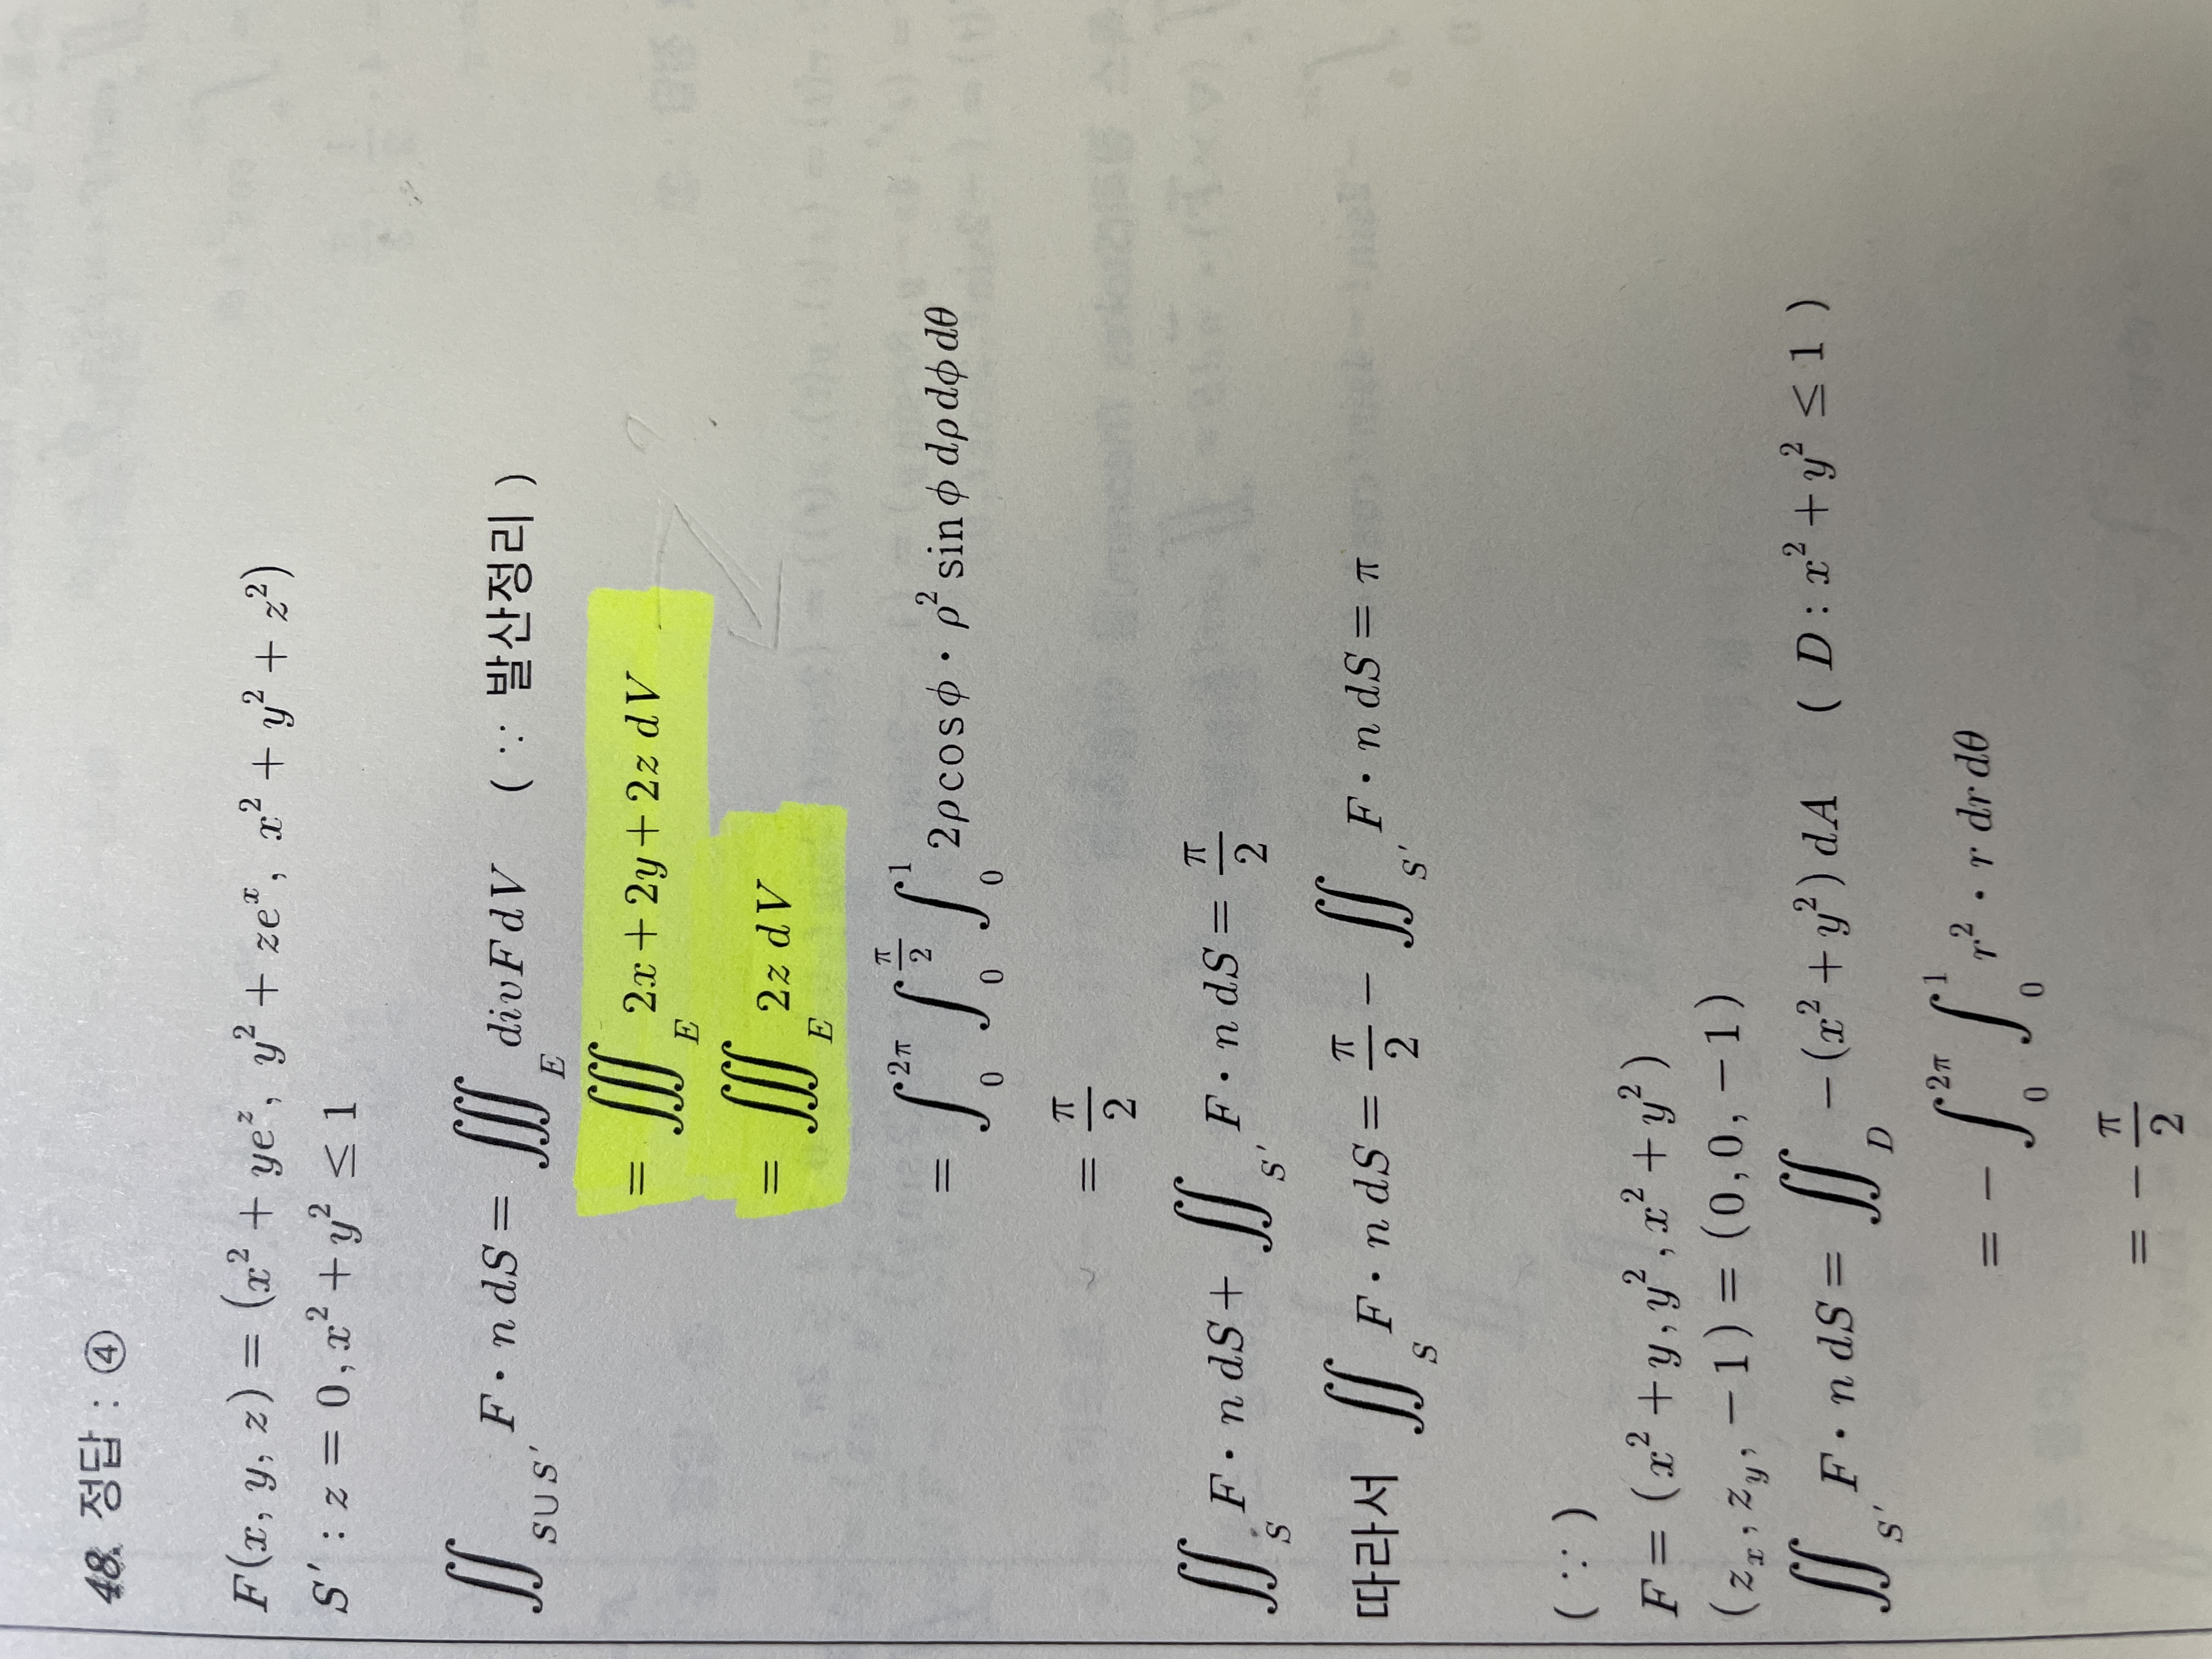 48. 정답 : ④
F(x, y, z) = (x² + ye^z, y² + ze^x, x² + y² + z²)
S′ : z = 0, x² + y² ≤ 1
∬_{S∪S′} F · n dS = ∭_E divF dV ( ∵ 발산정리 )
= ∭_E 2x + 2y + 2z dV
= ∭_E 2z dV
= ∫_0^{2π} ∫_0^{π/2} ∫_0^1 2ρcosϕ · ρ² sinϕ dρdϕdθ
= π/2
∬_S F · n dS + ∬_{S′} F · n dS = π/2
따라서 ∬_S F · n dS = π/2 − ∬_{S′} F · n dS = π
( ∵ )
F = (x² + y, y², x² + y²)
(z_x, z_y, −1) = (0, 0, −1)
∬_{S′} F · n dS = ∬_D −(x² + y²) dA ( D : x² + y² ≤ 1 )
= − ∫_0^{2π} ∫_0^1 r² · r dr dθ
= − π/2